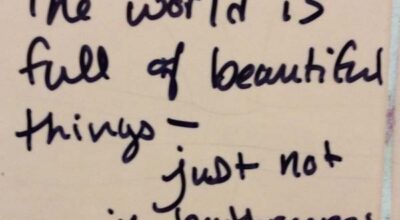 The world is
full of beautiful
things –
just not
in